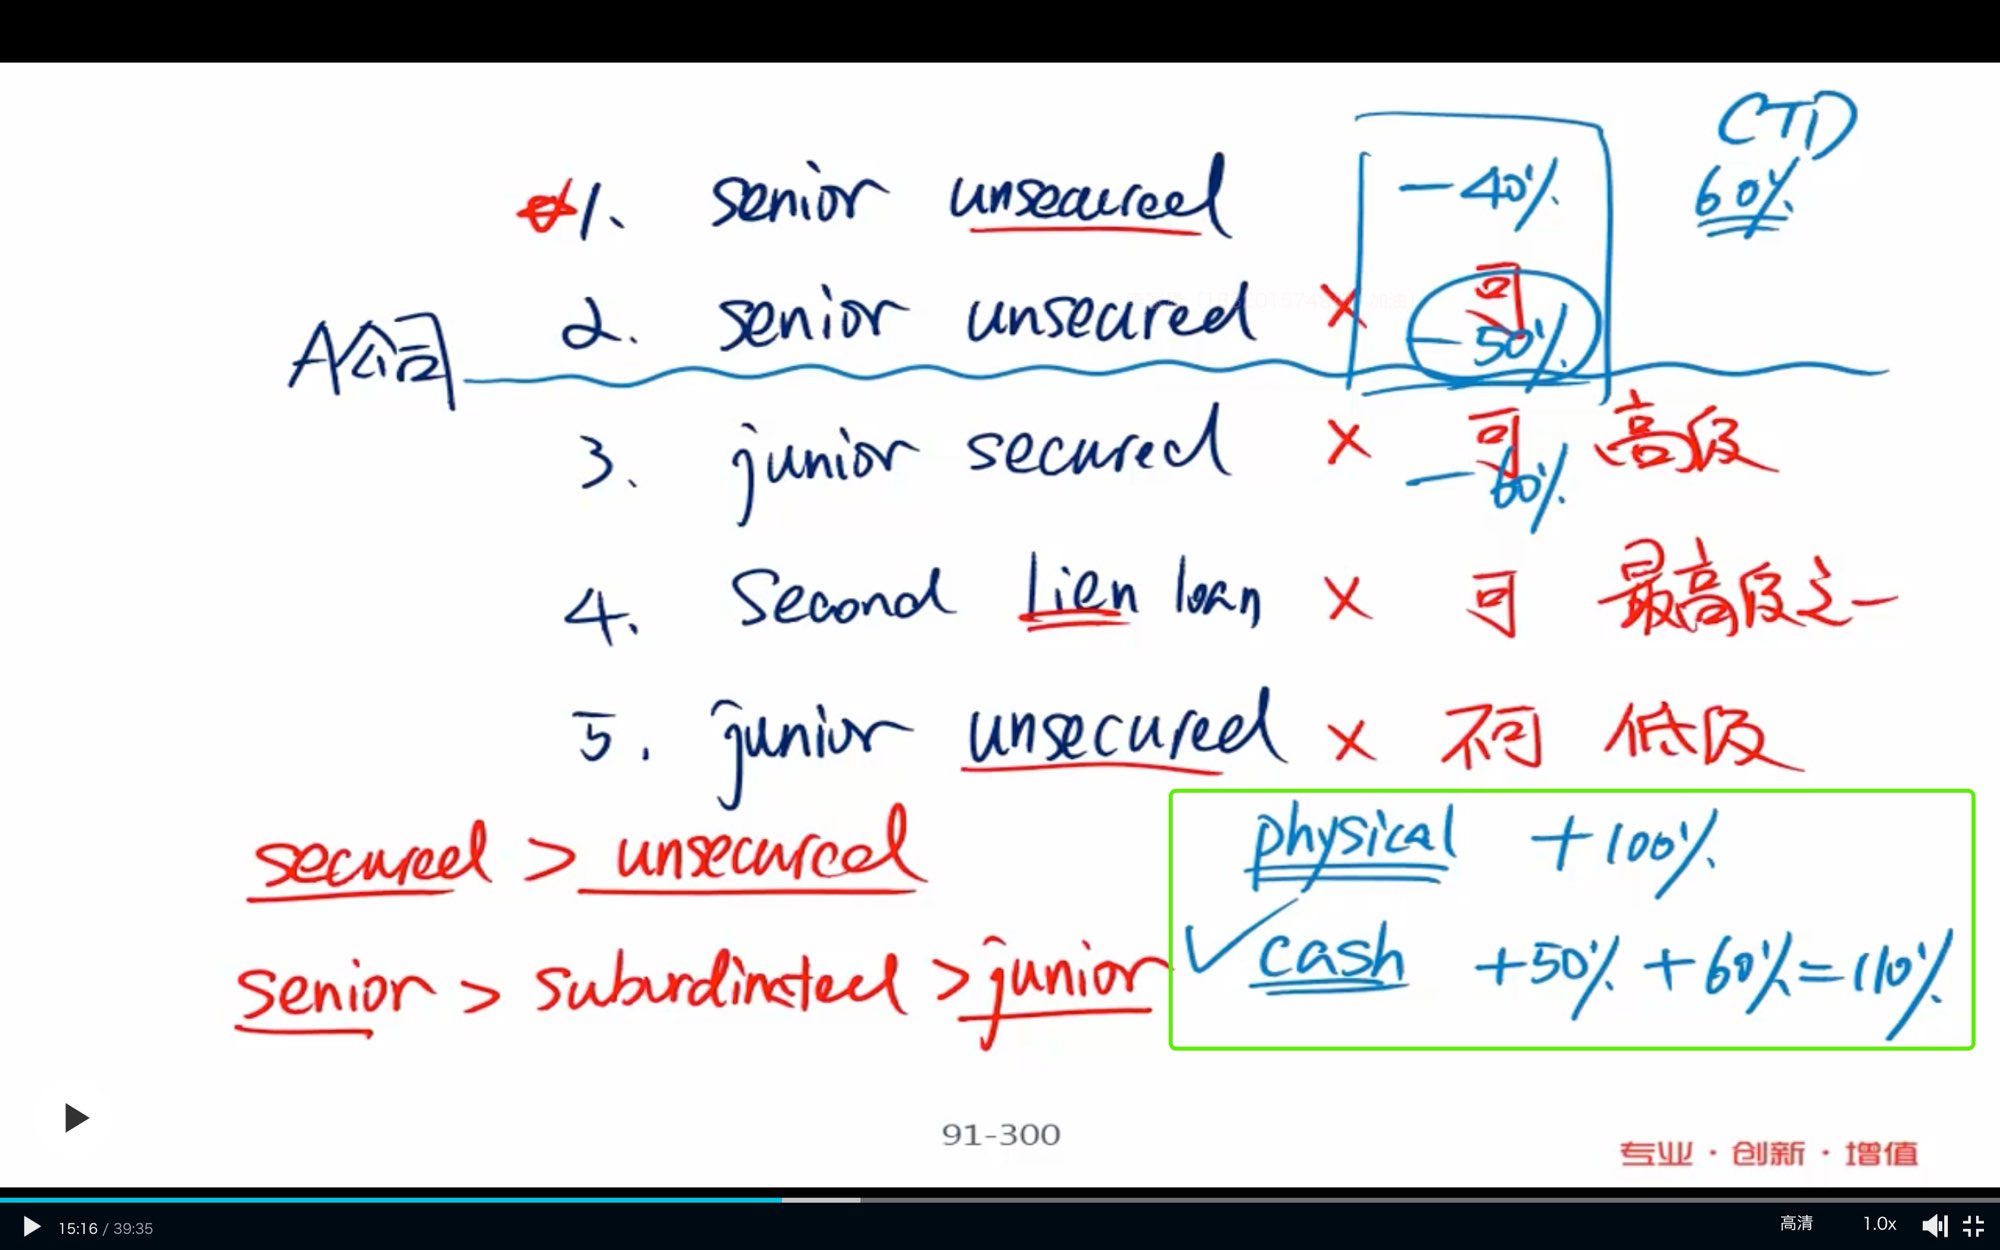 CTD
1. senior unsecured -40% 60%
2. senior unsecured × 可 -50%
A公司
3. junior secured × 可 高级
-60%
4. Second Lien loan × 可 最高级之一
5. junior unsecured × 不可 低级
secured > unsecured
physical +100%
senior > subordinated > junior
✓ cash +50% + 60% = 110%
91-300
专业·创新·增值
15:16 / 39:35 高清 1.0x